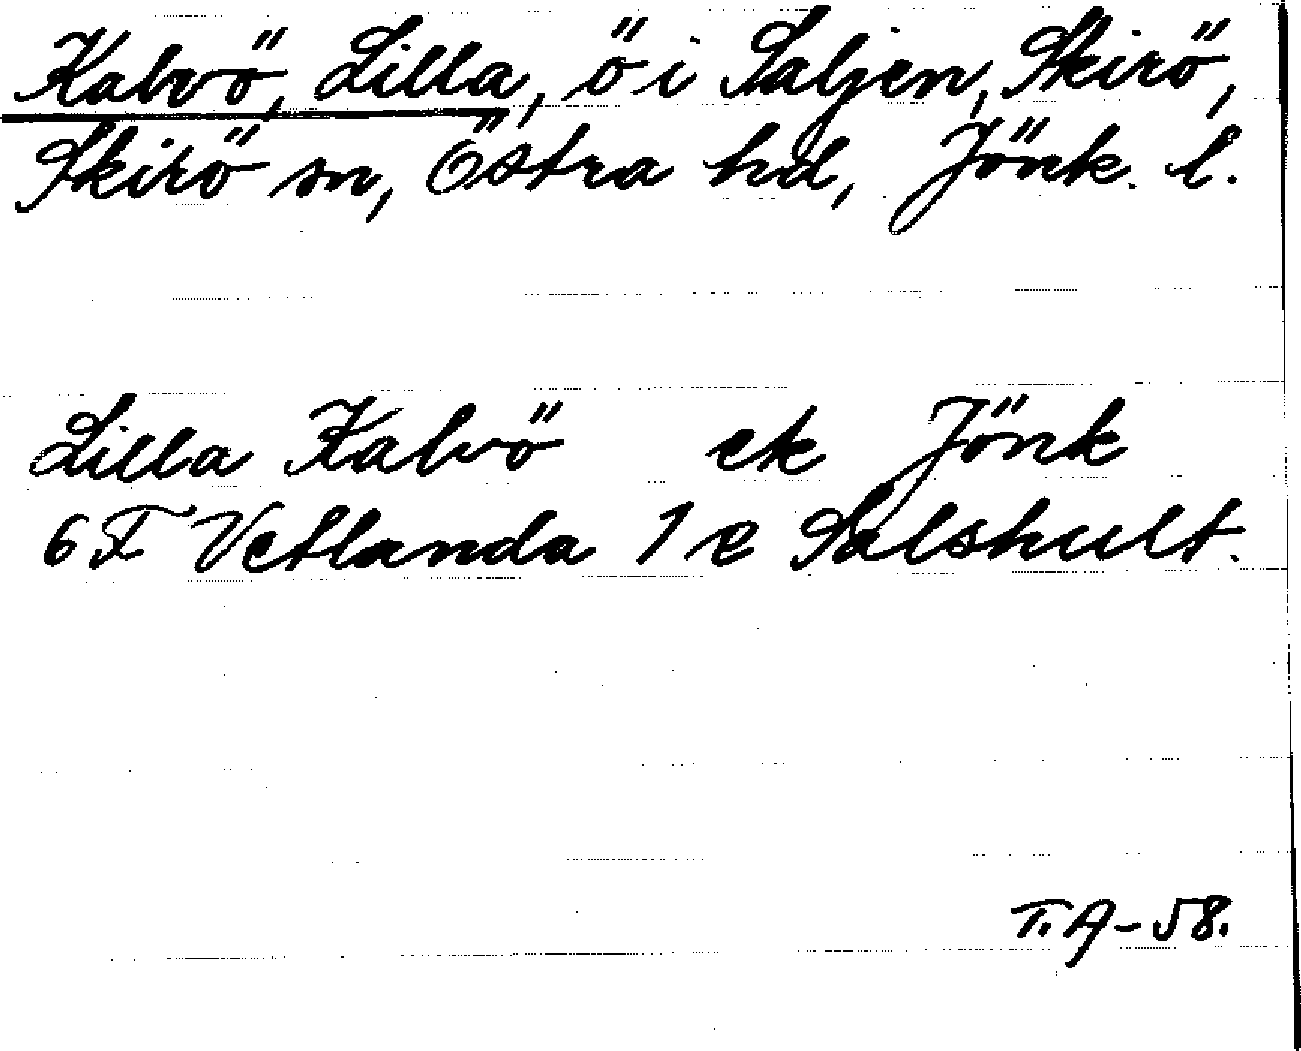 Kalvö, Lilla, ö i Saljen, Skirö,
Skirö sn, Östra hd, Jönk. l.
Lilla Kalvö ek Jönk
6 F Vetlanda 1 e Salshult.
T.A-58.